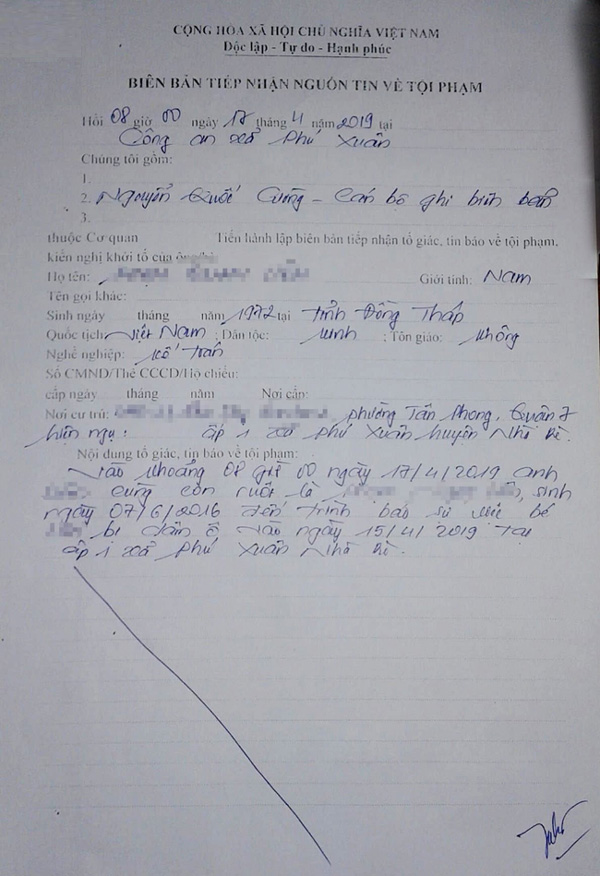 CỘNG HÒA XÃ HỘI CHỦ NGHĨA VIỆT NAM
Độc lập - Tự do - Hạnh phúc
BIÊN BẢN TIẾP NHẬN NGUỒN TIN VỀ TỘI PHẠM
Hồi 08 giờ 00 ngày 17 tháng 4 năm 2019 tại
Công an xã Phú Xuân
Chúng tôi gồm:
1.
2. Nguyễn Quốc Cường - Cán bộ ghi biên bản
3.
thuộc Cơ quan Tiến hành lập biên bản tiếp nhận tố giác, tin báo về tội phạm,
kiến nghị khởi tố của ông/bà
Họ tên: Giới tính: Nam
Tên gọi khác:
Sinh ngày tháng năm 1972 tại tỉnh Đồng Tháp
Quốc tịch: Việt Nam; Dân tộc: Kinh; Tôn giáo: Không
Nghề nghiệp:
Số CMND/Thẻ CCCD/Hộ chiếu:
cấp ngày tháng năm Nơi cấp:
Nơi cư trú: phường Tân Phong, Quận 7
hiện ngụ: ấp 1 xã Phú Xuân huyện Nhà Bè.
Nội dung tố giác, tin báo về tội phạm:
Vào khoảng 08 giờ 00 ngày 17/4/2019 anh
cùng con ruột là , sinh
ngày 07/6/2016 đến trình báo sự việc bé
bị dâm ô vào ngày 15/4/2019 tại
ấp 1 xã Phú Xuân Nhà Bè.